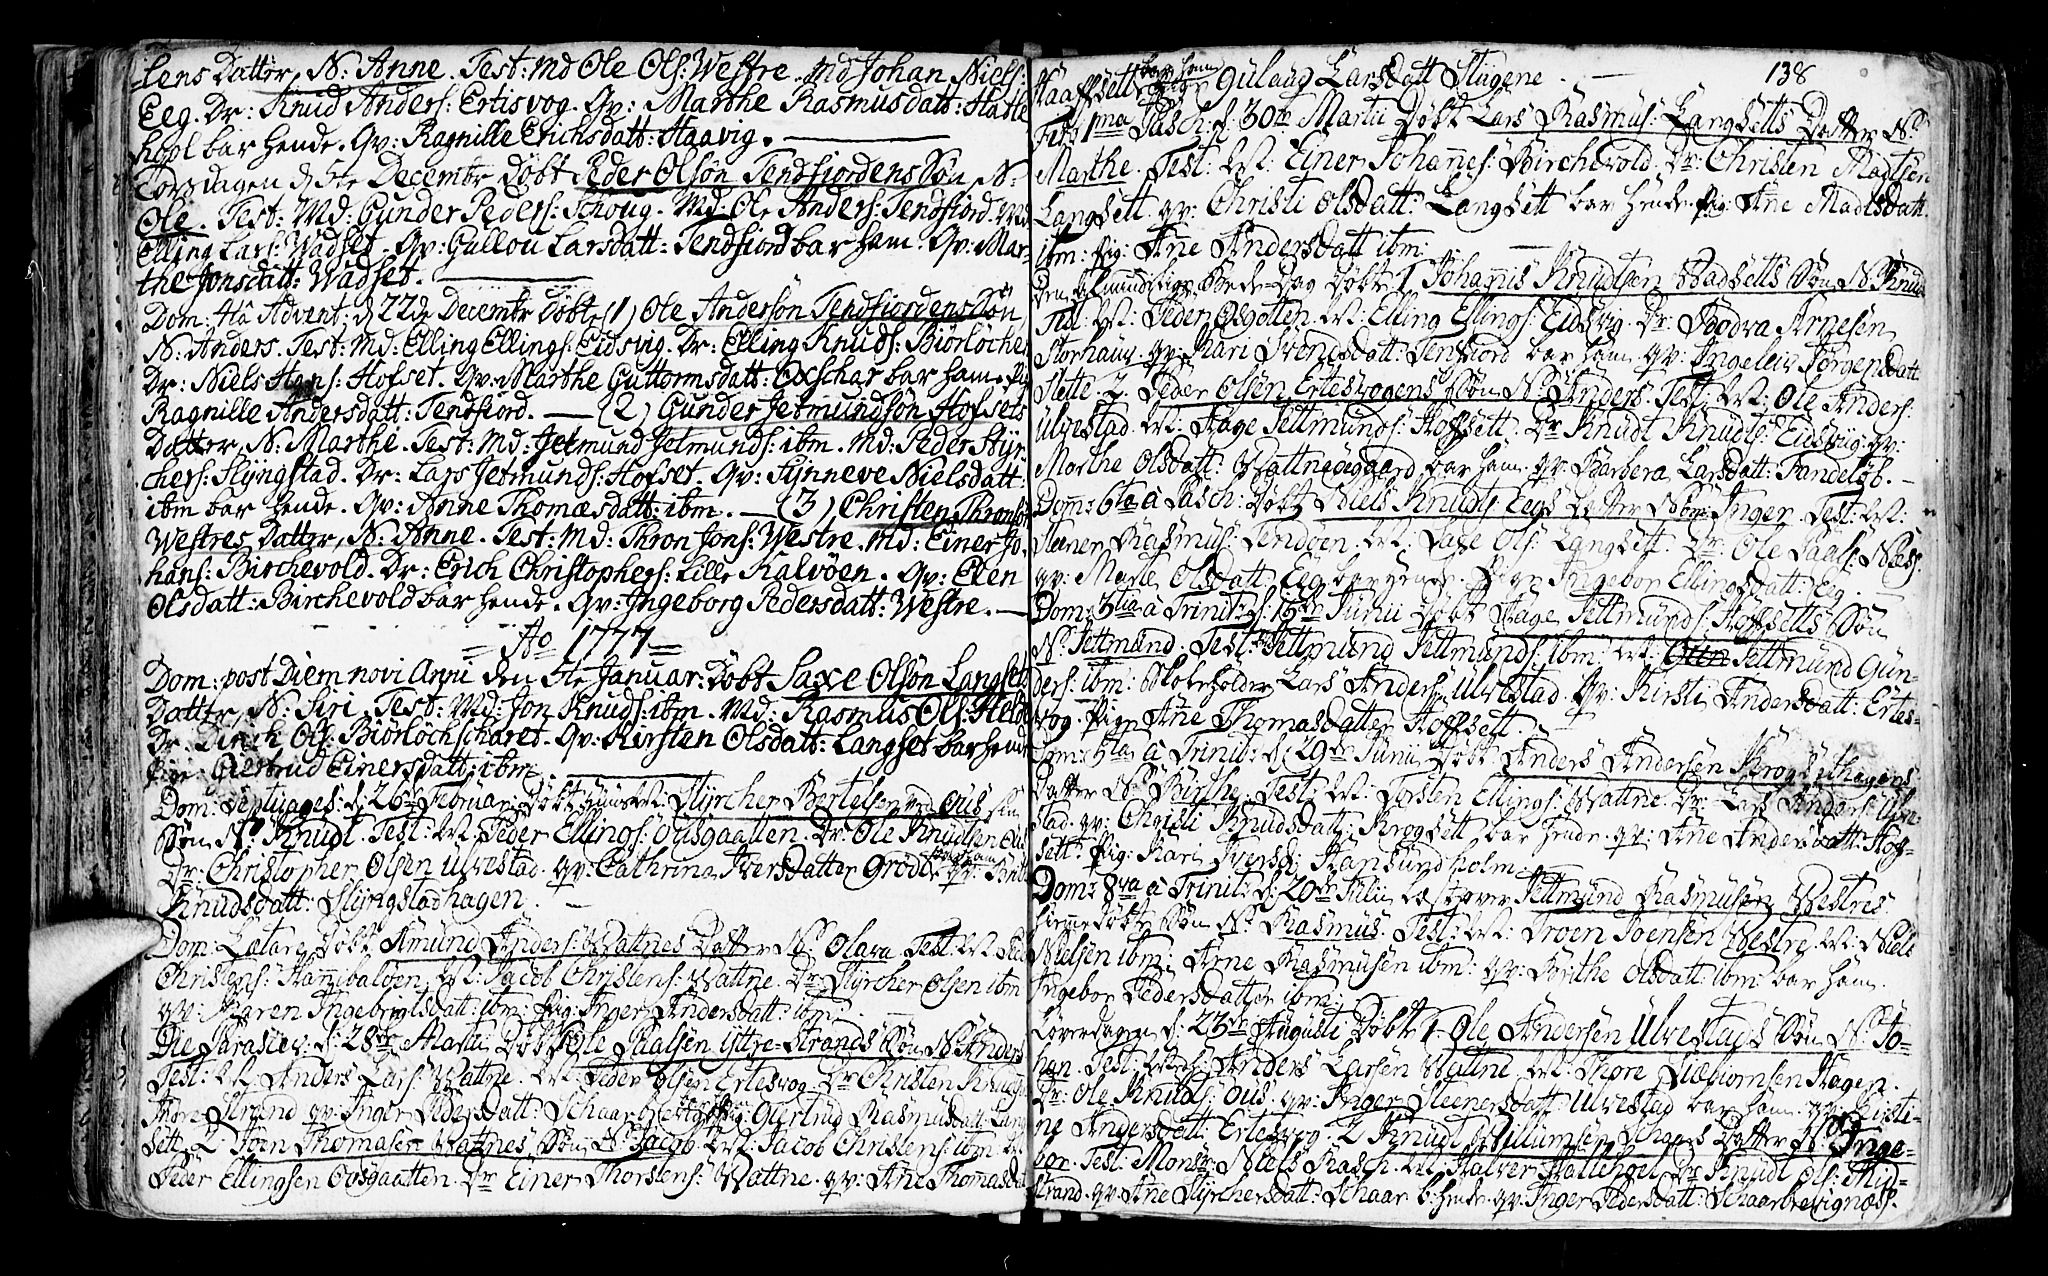 lens Datter, N: Anne. Test: Md Ole Ols: Westre. Md Johan Niels:
Eeg. Dr: Knud Anders: Ertisvog. Qv: Marthe Rasmusdatt: Hatle
hool bar hende. Qv: Ragnille Erichsdatt: Haavig.
Torsdagen d 5te Decembr døbt Peder Olsøn Tendfiordens Søn N:
Ole. Test: Md: Gunder Peders: Schoug. Md: Ole Anders: Tendfiord. Md
Elling Lars: Wadset. Qv: Gullou Larsdatt: Tendfiord bar ham. Qv: Mar-
the Jonsdatt: Wadset.
Dom: 4ta Advent: d 22de Decembr døbt (1) Ole Andersøn Tendfiordens Søn
N: Anders. Test: Md: Elling Ellings: Eidsvig. Dr: Elling Knuds: Biørløchs
Dr: Niels Hans: Hofset. Qv: Marthe Guttormsdatt: Oxschar bar ham. Pig
Ragnille Andersdatt: Tendfiord. — (2) Gunder Jetmundsøn Hofsets
Datter, N: Marthe. Test: Md: Jetmund Jetmunds: ibm. Md: Peder Styr-
chers: Slyngstad. Dr: Lars Jetmunds: Hofset. Qv: Synneve Nielsdatt:
ibm bar hende. Qv: Anne Thomæsdatt: ibm. — (3) Christen Thronsøn
Westres Datter, N: Anne. Test: Md: Thron Jons: Westre. Md: Einer Jo-
hans: Birchevold. Dr: Erich Christophers: Lille Kalvøen. Qv: Elen
Olsdatt: Birchevold bar hende. Qv: Ingeborg Pedersdatt: Westre. —
= Ao 1777 =
Dom: post Diem novi Anni den 5te Januar: døbt Saxe Olsøn Langsets
Datter, N: Siri. Test: Md: Jon Knuds: ibm. Md: Rasmus Ols: Helde
Dr: Ols: Biørløchscharet. Qv: Kirsten Olsdatt: Langset bar hende
Pige: Giertrud Einersdatt: ibm.
Dom: Septuages: d: 26 Februar: døbt Styrcher Bertelsen Ous
Søn N: Knudt. Test: M: Peder Ellings: Ousgaatten. Dr: Ole Knudtsen
Dr: Christopher Olsen Ulvestad. qv: Cathrina Iversdatter Grødde bar ham qv:
Knudsdatt: Slyngstadhagen.
Dom: Lætare døbt Amund Anders: Wattnes Datter N: Olava. Test: M:
Christens: Hannibaløen. M: Jacob Christens: Wattne. Dr: Styrcher Olsen ibm
qv: Maren Ingebrigtsdatt: ibm: Pig: Inger Andersdatt: ibm:
Die d: 28de Martii døbt Ole Paalsen Yttre-Strands Søn N: Anders
Test: M: Anders Lars: Wattne. M: Peder Olsen Ertesvog. Dr: Christen
Strand qv: Inger Pedersdatt: Schaar Giertrud Rasmusdatt: Lang
sett 2 Joen Thomasen Wattnes Søn N: Jacob. M: Jacob Christens: ibm.
Peder Ellingsen Ousgaatten. Dr: Einer Thorstens: Wattne. qv: Ane Thomasdat

138
Haafsett bar hende Gulaug Larsdatt Stügene.
Fer: 1ma Pasch: d: 30te Martii døbt Lars Rasmus: Langsetts Datter N:
Marthe. Test: M: Einer Johannes: Birchevold. Dr: Christen Madtsen
Langsett. qv: Christi Olsdatt: Langsett bar hende. pig: Ane Madtsdatt:
ibm: Pig: Ane Andersdatt ibm:
Den almindelige Bede-Dag døbt 1 Johanis Knudtsen Wadsetts Søn N: Knud
Test M: Peder Osgotten. M: Elling Ellings: Eidsvig. Dr: Arnesen
Storhaug. qv: Kari Svendsdatt: Tenfiord bar ham. qv: Ingeleiv Jørgensdatt
Slette 2. Peder Olsen Ertesvogens Søn N: Anders. Test: M: Ole Anders:
Ulvestad. M: Aage Jettmunds: Hoffsett. Dr Knudt Knudts: Eidsvig. qv:
Marthe Olsdatt: Wattneøegaard bar ham. qv: Barbera Larsdatt: Tandeløb. —
Dom: 6ta à Pasch: døbt Niels Knudts: Eegs Datter Inger. Test: M:
Steener Rasmus: Lendøen. M: Ols: Langsett. Dr: Ole Paals: Næss.
qv: Marte Olsdatt: Eeg bar hende. Pige Ingebor Ellingsdatt: Eeg. —
Dom: 3tia à Trinit: d: 15de Junii døbt Aage Jettmunds: Hoffsetts Søn
N: Jettmund. Test: Jettmund Jettmunds: ibm: M: Jettmund Gun-
ders: ibm: Skoleholder Lars Anders: Ulvestad. Qv: Kirsti Andersdatt: Ertes-
vog. Pige Ane Thomasdatter Hoffsett.
Dom: 5ta à Trinit: d: 29de Junii døbt Anders Andersen Krogsethagens
Datter N: Birthe. Test: M: Torsten Ellings: Wattne. Dr: Lars Anders: Ulve-
stad. qv: Christi Knudsdatt: Krogsett bar hende. qv: Ane Andersdatt: Hof-
sett. Pig: Kari Iversd: Hansundholm.
Dom: 8va à Trinit: d: 20de Julii læst over Jettmund Rasmusen Westres
hiemedøbte Søn N: Rasmus. Test: M: Troen Joensen Westre. M: Niels
Nielsen ibm: Arne Rasmusen ibm: qv: Birthe Olsdatt: ibm: bar ham.
Ingebor Pedersdatter ibm:
Løverdagen d: 23de Augusti døbt 1. Ole Andersen Ulvestads Søn N: Jo-
han. Test: M: Anders Larsen Wattne. M: Thore Hagen.
Dr: Ole Knuds: Ous. qv: Inger Steenersdatt: Ulvestad bar ham. qv: Kirsti-
ne Andersdatt: Ertesvog. 2 Knudt Willumsen Datter N: Inge-
bor. Test. Monsr: Niels Rasch. M: Halver Hallengel. Dr: Knudt Ols: Mid-
strand. qv: Ane Styrchersdatt: Schaar b: hende. qv: Inger Pedersdatt: Schaarbrevignæss.